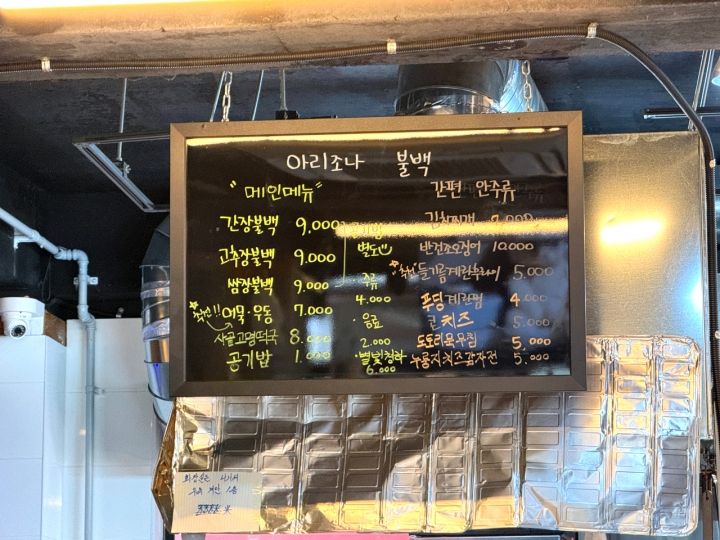 아리조나 불백
"메인메뉴"
간장불백 9,000
고추장불백 9,000
쌈장불백 9,000
추천!! 어묵·우동 7,000
사골고명떡국 8,000
공기밥 1,000
별도
주류
4,000
·음료
2,000
·별빛청하
6,000
간편 안주류
김치찌개 7,000
반건조오징어 10,000
추천 들기름계란후라이 5,000
푸딩계란찜 4,000
콘치즈
도토리묵무침 5,000
누룽지치즈감자전 5,000
화장실은